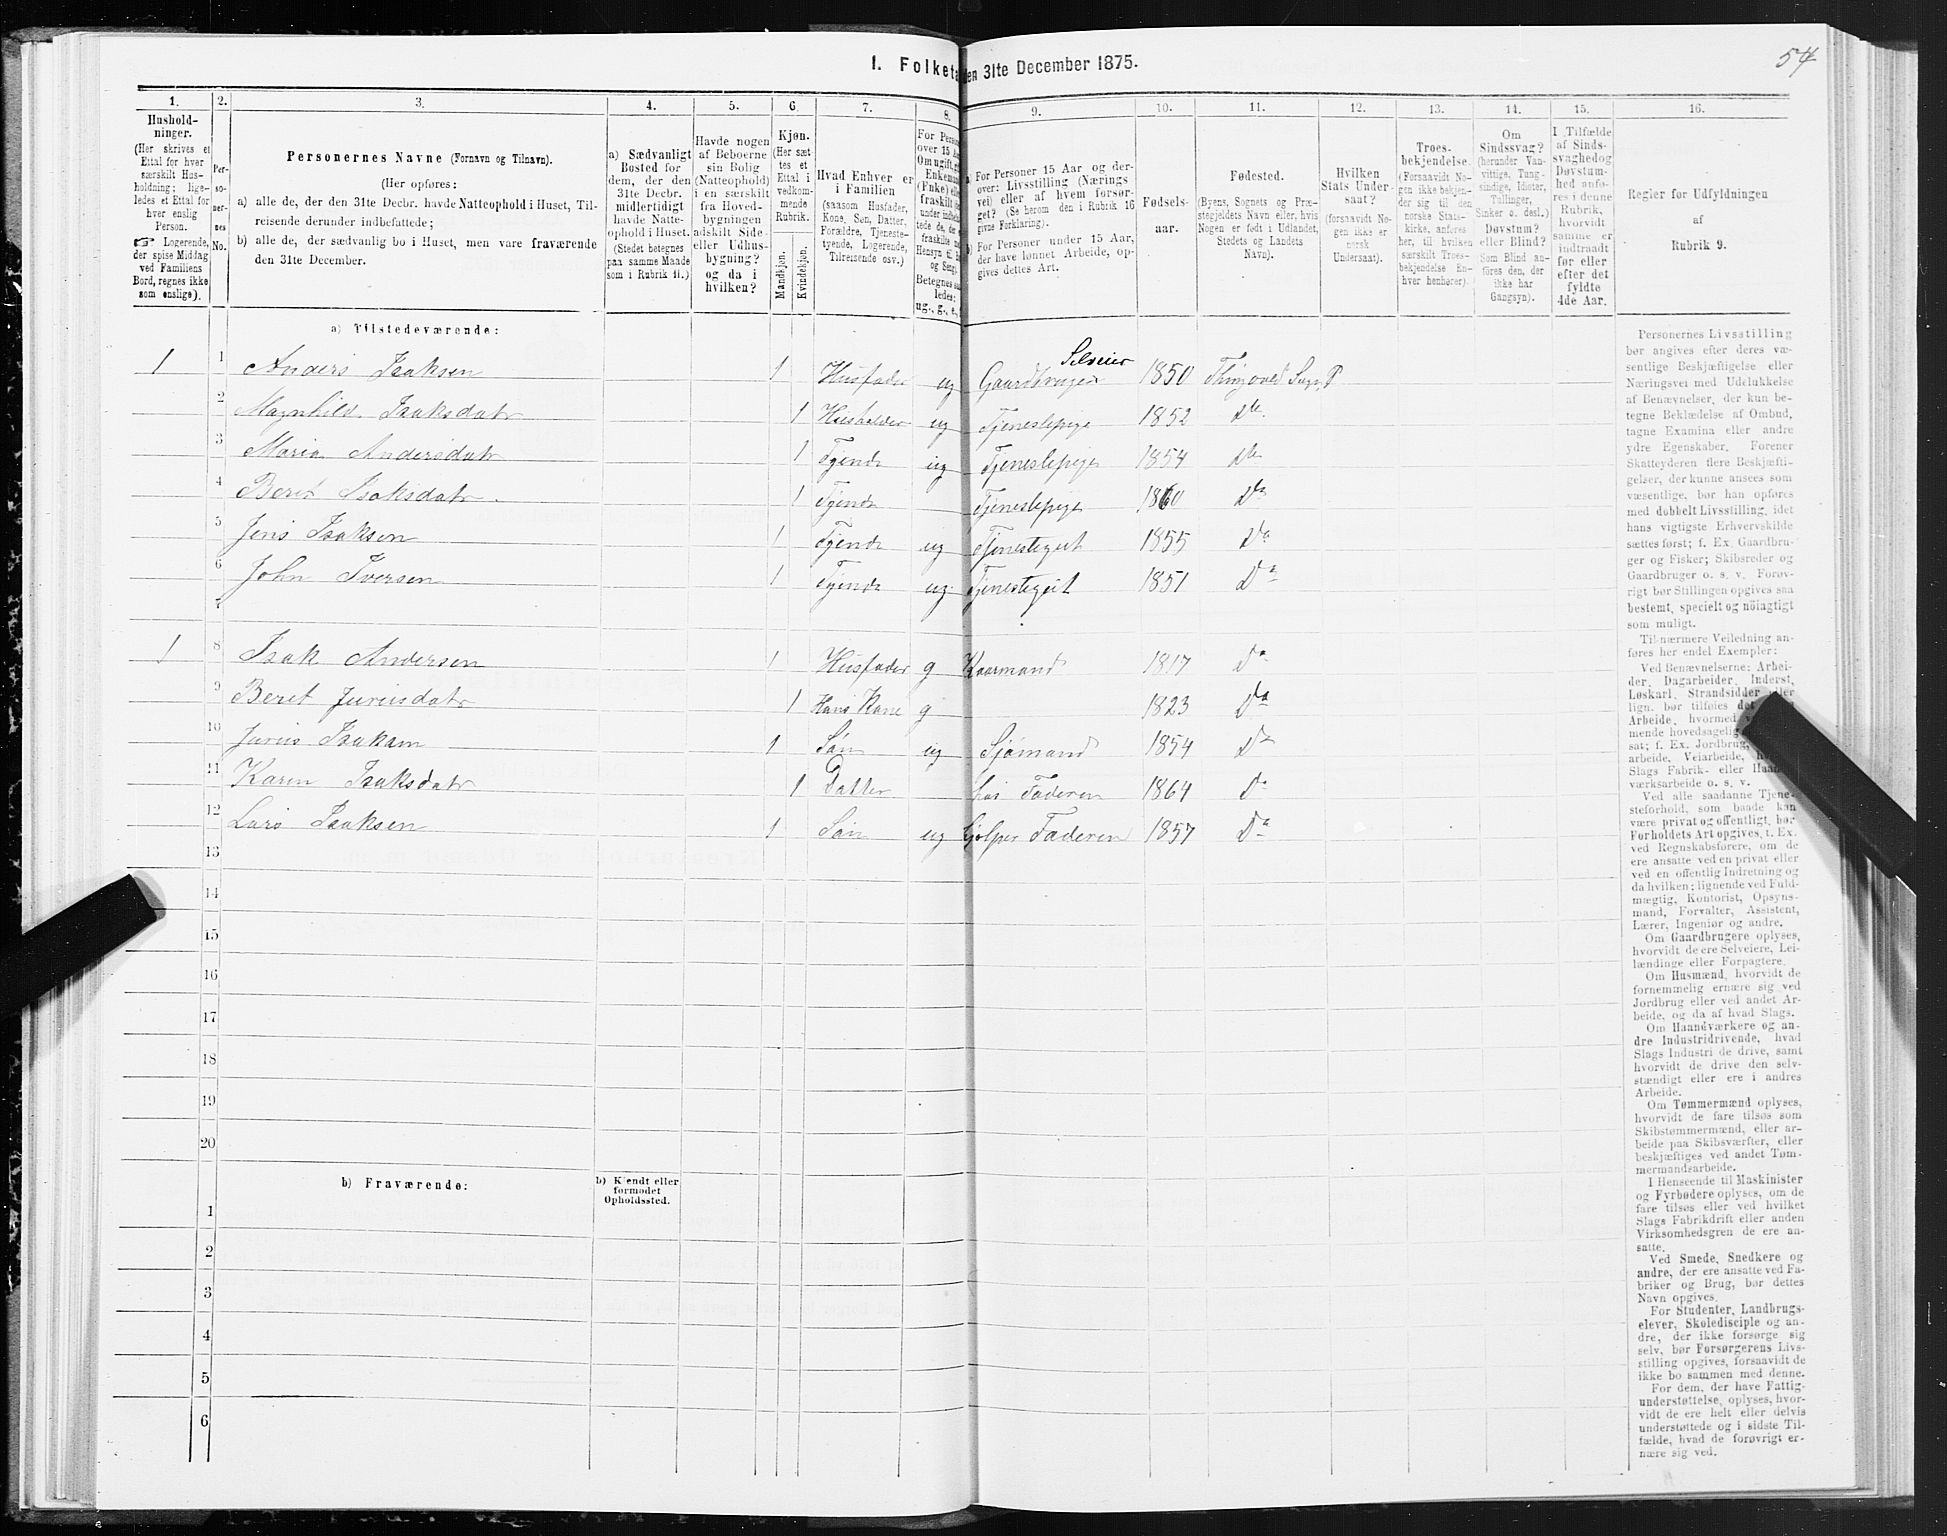 54
I. Folketæ den 31te December 1875.
1. 2. 3. 4. 5. 6. 7. 8. 9. 10. 11. 12. 13. 14. 15. 16.
Hushold-
ninger.
(Her skrives et
Ettal for hver
særskilt Hus-
holdning; lige-
ledes et Ettal for
hver enslig
Person.
☞ Logerende,
der spise Middag
ved Familiens
Bord, regnes ikke
som enslige).
Per-
so-
ner-
nes
No.
Personernes Navne (Fornavn og Tilnavn).
(Her opføres:
a) alle de, der den 31te Decbr. havde Natteophold i Huset, Til-
reisende derunder indbefattede;
b) alle de, der sædvanlig bo i Huset, men vare fraværende
den 31te December.
a) Sædvanligt
Bosted for
dem, der den
31te Decbr.
midlertidigt
havde Natte-
ophold i Huset.
(Stedet betegnes
paa samme Maade
som i Rubrik 11.)
Havde nogen
af Beboerne
sin Bolig
(Natteophold)
i en særskilt
fra Hoved-
bygningen
adskilt Side-
eller Udhus-
bygning?
og da i
hvilken?
Kjøn.
(Her sæt-
tes et
Ettal i
vedkom-
mende
Rubrik.
Mandkjøn.
Kvindekjøn.
Hvad Enhver er
i Familien
(saasom Husfader,
Kone, Søn, Datter,
Forældre, Tjeneste-
tyende, Logerende,
Tilreisende osv.)
For Perso
over 15 Aa
Om ugift, g
Enkeman
(Fnke) elle
fraskilt
under
tede de,
fraskilte
Hensyn til B
og Seng.
Betegnes saa
ledes:
ug., g., e.,
a) For Personer 15 Aar og der-
over: Livsstilling (Nærings
vei) eller af hvem forsør-
get? (Se herom den i Rubrik 16
givne Forklaring).
b) For Personer under 15 Aar,
der have lønnet Arbeide, op-
gives dettes Art.
Fødsels-
aar.
Fødested.
(Byens, Sognets og Præ-
stegjeldets Navn eller, hvis
Nogen er født i Udlandet,
Stedets og Landets
Navn).
Hvilken
Stats Under-
saat?
(forsaavidt No-
gen ikke er
norsk
Undersaat).
Troes-
bekjendelse.
(Forsaavidt No-
gen ikke bekjen-
der sig til den
norske Stats-
kirke, anføres
her, til hvilken
særskilt Troes-
bekjendelse En-
hver henhører).
Om
Sindssvag?
(herunder Van-
vittige, Tung-
sindige, Idioter,
Tullinger,
Sinker o. desl.)
Døvstum?
eller Blind?
Som Blind an-
føres den, der
ikke har
Gangsyn).
I Tilfælde
af Sinds-
svaghed og
Døvstum-
hed anfø-
res i denne
Rubrik,
hvorvidt
samme er
indtraadt
før eller
efter det
fyldte
4de Aar.
Regler for Udfyldningen
af
Rubrik 9.
a) Tilstedeværende:
1 1 Anders Isaksen 1 Husfader ug Gaardbruger Selveier 1850 Thingvold Sogn, P
2 Magnhild Isaksdatr 1 Husholder ug Tjenestepige 1852 Do
3 Maria Andersdatr 1 Tjende ug Tjenestepige 1854 Do
4 Beret Isaksdatr 1 Tjende Tjenestepige 1860 Do
5 Jens Isaksen 1 Tjende ug Tjenestegut 1855 Do
6 John Iversen 1 Tjende ug Tjenestegut 1851 Do
7
1 8 Isak Andersen 1 Husfader g Kaarmand 1817 Do
9 Beret Jurusdatr 1 Hans Kone g 1823 Do
10 Jurus Isaksen 1 Søn ug Sjømand 1854 Do
11 Karen Isaksdatr 1 Datter hos Faderen 1864 Do
12 Lars Isaksen 1 Søn ug hjelper Faderen 1857 Do
13
14
15
16
17
18
19
20
b) Fraværende:
b) Kjendt eller
formodet
Opholdssted.
1
2
3
4
5
6
Personernes Livsstilling
bør angives efter deres væ-
sentlige Beskjæftigelse eller
Næringsvei med Udelukkelse
af Benævnelser, der kun be-
tegne Beklædelse af Ombud,
tagne Examina eller andre
ydre Egenskaber. Forener
Skatteyderen flere Beskjæfti-
gelser, der kunne ansees som
væsentlige, bør han opføres
med dobbelt Livsstilling, idet
hans vigtigste Erhvervskilde
sættes først; f. Ex. Gaardbru-
ger og Fisker; Skibsreder og
Gaardbruger o. s. v. Forøv-
rigt bør Stillingen opgives saa
bestemt, specielt og nöiagtigt
som muligt.
Til nærmere Veiledning an-
føres her endel Exempler:
Ved Benævnelserne: Arbei-
der, Dagarbeider, Inderst,
Løskarl, Strandsidder eller
lign. bør tilføies det
Arbeide, hvormed
mende hovedsagelig
sat; f. Ex. Jordbrug,
arbeide, Veiarbeide,
Slags Fabrik- eller Haand-
værksarbeide o. s. v.
Ved alle saadanne Tjene-
steforhold, som baade kan
være privat og offentligt, bør
Forholdets Art opgives, t. Ex.
ved Regnskabsførere, om de
ere ansatte ved en privat eller
ved en offentlig Indretning og
da hvilken; lignende ved Fuld-
mægtig, Kontorist, Opsyns-
mand, Forvalter, Assistent,
Lærer, Ingeniør og andre.
Om Gaardbrugere oplyses,
hvorvidt de ere Selveiere, Lei-
lændinge eller Forpagtere.
Om Husmænd, hvorvidt de
fornemmelig ernære sig ved
Jordbrug eller ved andet Ar-
beide, og da af hvad Slags.
Om Haandværkere og an-
dre Industridrivende, hvad
Slags Industri de drive, samt
hvorvidt de drive den selv-
stændigt eller ere i andres
Arbeide.
Om Tømmermænd oplyses,
hvorvidt de fare tilsøs som
Skibstømmermænd, eller ar-
beide paa Skibsværfter, eller
beskjæftiges ved andet Tøm-
mermandsarbeide.
I Henseende til Maskinister
og Fyrbødere oplyses, om de
fare tilsøs eller ved hvilket
Slags Fabrikdrift eller anden
Virksomhedsgren de ere an-
satte.
Ved Smede, Snedkere og
andre, der ere ansatte ved Fa-
briker og Brug, bør dettes
Navn opgives.
For Studenter, Landbrugs-
elever, Skoledisciple og an-
dre, der ikke forsørge sig
selv, bør Forsørgerens Livs-
stilling opgives, forsaavidt de
ikke bo sammen med denne.
For dem, der have Fattig-
understøttelse, oplyses, hvor-
vidt de ere helt eller delvis
understøttede og i sidste Til-
fælde, hvad de forøvrigt er-
nære sig ved.